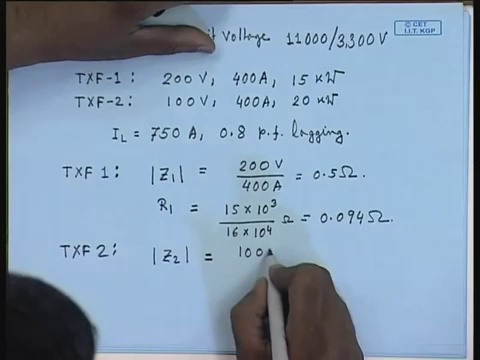 Voltage 11000/3,300V
© CET
I.I.T. KGP
TXF-1: 200V, 400A, 15 kW
TXF-2: 100V, 400A, 20 kW
I_L = 750 A, 0.8 p.f. lagging.
TXF 1: |Z₁| = 200 V / 400A = 0.5Ω.
R₁ = 15 × 10³ / 16 × 10⁴ Ω = 0.094Ω.
TXF 2: |Z₂| = 100